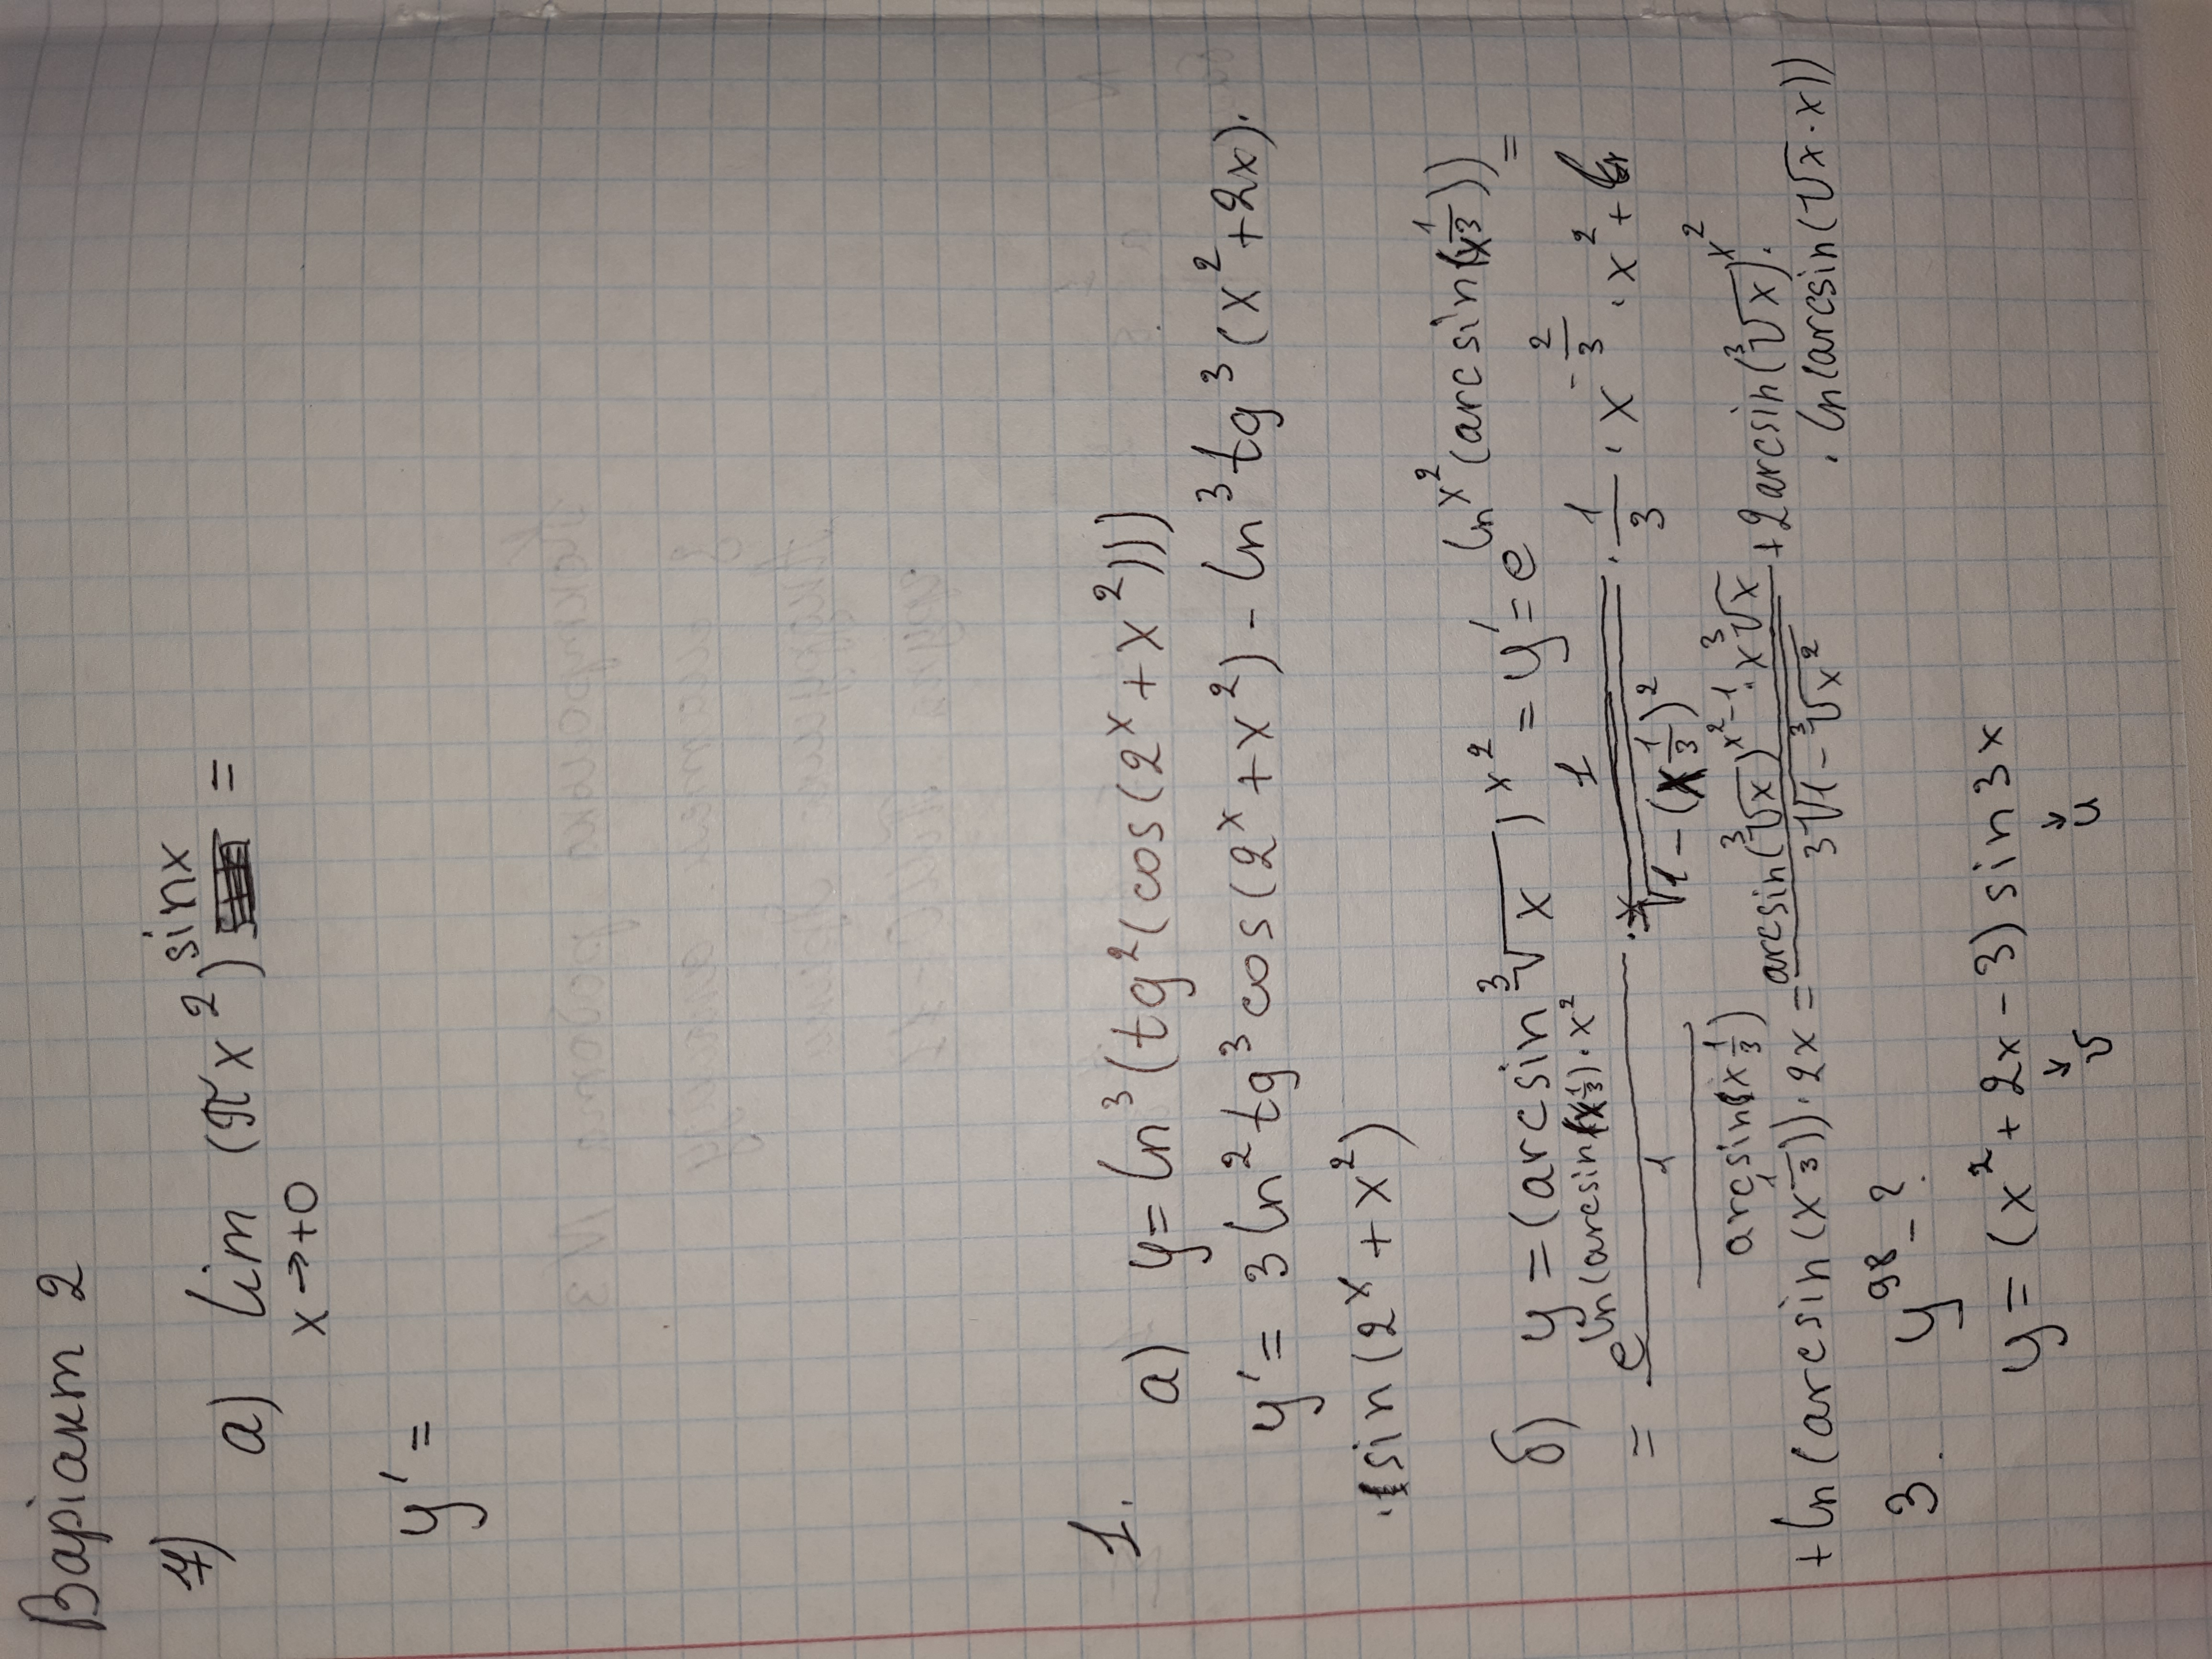 Варіант 2
7)
а) lim (πx²)^sinx =
x→+0
y' =
1.
а) y = ln³(tg²(cos(2^x + x²)))
y' = 3 ln² tg³ cos(2^x + x²) - ln³ tg³ (x² + 2x)·
· sin(2^x + x²)
б) y = (arcsin ∛x)^x² = y' = e^(ln^x² (arcsin(x^1/3))) =
= e^(ln(arcsin(x^1/3)·x²) / (1 / arcsin(x^1/3)) · 1 / √(1-(x^1/3)²) · 1/3 · x^(-2/3) · x² +
+ ln(arcsin(x^1/3))·2x = arcsin(∛x)^(x²-1) · x∛x / 3√(1-∛x²) + 2arcsin(∛x)^x² ·
· ln(arcsin(√x·x))
3. y^98 - ?
y = (x² + 2x - 3) sin3x
↓ ↓
v u